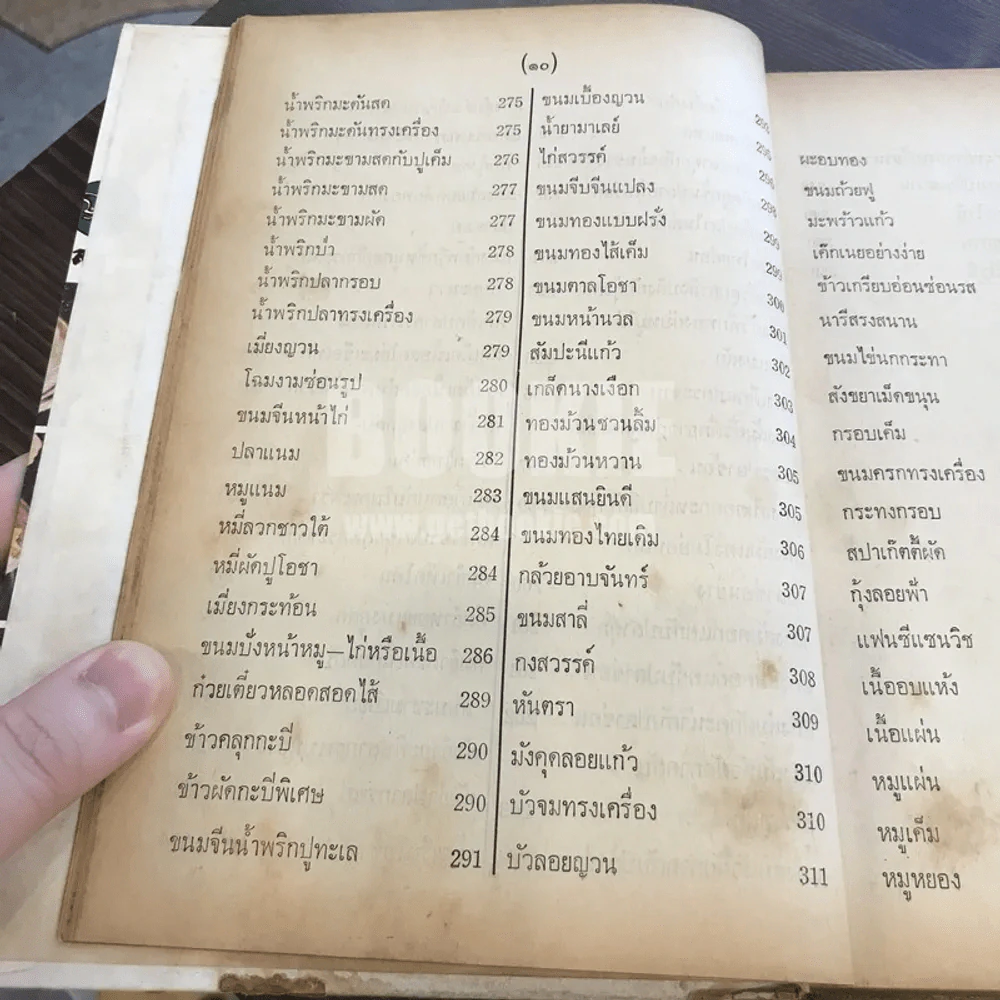 (๑๐)
น้ำพริกมะดันสด 275
น้ำพริกมะดันทรงเครื่อง 275
น้ำพริกมะขามสดกับปูเค็ม 276
น้ำพริกมะขามสด 277
น้ำพริกมะขามผัด 277
น้ำพริกป่า 278
น้ำพริกปลากรอบ 278
น้ำพริกปลาทรงเครื่อง 279
เมี่ยงญวน 279
โฉมงามซ่อนรูป 280
ขนมจีนหน้าไก่ 281
ปลาแนม 282
หมูแนม 283
หมี่ลวกชาวใต้ 284
หมี่ผัดปูโอชา 284
เมี่ยงกระท้อน 285
ขนมปังหน้าหมู—ไก่หรือเนื้อ 286
ก๋วยเตี๋ยวหลอดสอดไส้ 289
ข้าวคลุกกะปี 290
ข้าวผัดกะปิพิเศษ 290
ขนมจีนน้ำพริกปูทะเล 291
ขนมเบื้องญวน
น้ำยามาเลย์
ไก่สวรรค์
ขนมจีบจีนแปลง 298
ขนมทองแบบฝรั่ง 299
ขนมทองไส้เค็ม 299
ขนมตาลโอชา 300
ขนมหน้านวล 301
สัมปะนีแก้ว 302
เกล็ดนางเงือก 303
ทองม้วนชวนลิ้ม 304
ทองม้วนหวาน 305
ขนมแสนยินดี 305
ขนมทองไทยเดิม 306
กล้วยอาบจันทร์ 307
ขนมสาลี่ 307
กงสวรรค์ 308
หันตรา 309
มังคุดลอยแก้ว 310
บัวจมทรงเครื่อง 310
บัวลอยญวน 311
ผะอบทอง
ขนมถ้วยฟู
มะพร้าวแก้ว
เค๊กเนยอย่างง่าย
ข้าวเกรียบอ่อนซ่อนรส
นารีสรงสนาน
ขนมไข่นกกระทา
สังขยาเม็ดขนุน
กรอบเค็ม
ขนมครกทรงเครื่อง
กระทงกรอบ
สปาเก๊ตตี้ผัด
กุ้งลอยฟ้า
แฟนซีแซนวิช
เนื้ออบแห้ง
เนื้อแผ่น
หมูแผ่น
หมูเค็ม
หมูหยอง